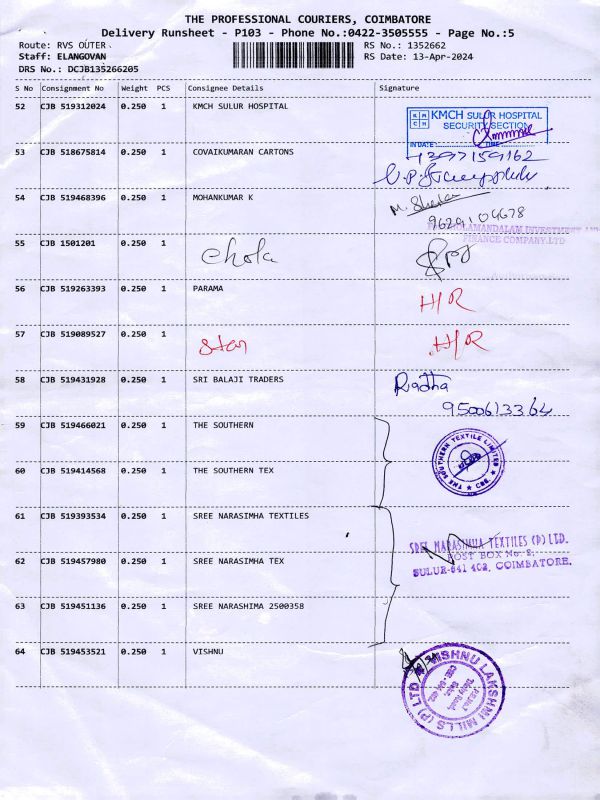 THE PROFESSIONAL COURIERS, COIMBATORE
Delivery Runsheet - P103 - Phone No.:0422-3505555 - Page No.:5
Route: RVS OUTER
RS No.: 1352662
Staff: ELANGOVAN
RS Date: 13-Apr-2024
DRS No.: DCJB135266205
S No Consignment No Weight PCS Consignee Details Signature
52 CJB 519312024 0.250 1 KMCH SULUR HOSPITAL
KMCH SULUR HOSPITAL
SECURITY SECTION
IN DATE: TIME
53 CJB 518675814 0.250 1 COVAIKUMARAN CARTONS
1397159162
54 CJB 519468396 0.250 1 MOHANKUMAR K
9629104678
CHOLAMANDALAM INVESTMENT AND
FINANCE COMPANY LTD
55 CJB 1501201 0.250 1 chola
56 CJB 519263393 0.250 1 PARAMA H/R
57 CJB 519089527 0.250 1 Star H/R
58 CJB 519431928 0.250 1 SRI BALAJI TRADERS Radha
9500613364
59 CJB 519466021 0.250 1 THE SOUTHERN
THE SOUTHERN TEXTILE LIMITED
CBE.
60 CJB 519414568 0.250 1 THE SOUTHERN TEX
61 CJB 519393534 0.250 1 SREE NARASIMHA TEXTILES
SREE NARASIMHA TEXTILES (P) LTD.
POST BOX No. 2,
SULUR-641 402, COIMBATORE.
62 CJB 519457980 0.250 1 SREE NARASIMHA TEX
63 CJB 519451136 0.250 1 SREE NARASHIMA 2500358
64 CJB 519453521 0.250 1 VISHNU
VISHNU LAKSHMI MILLS (P) LTD